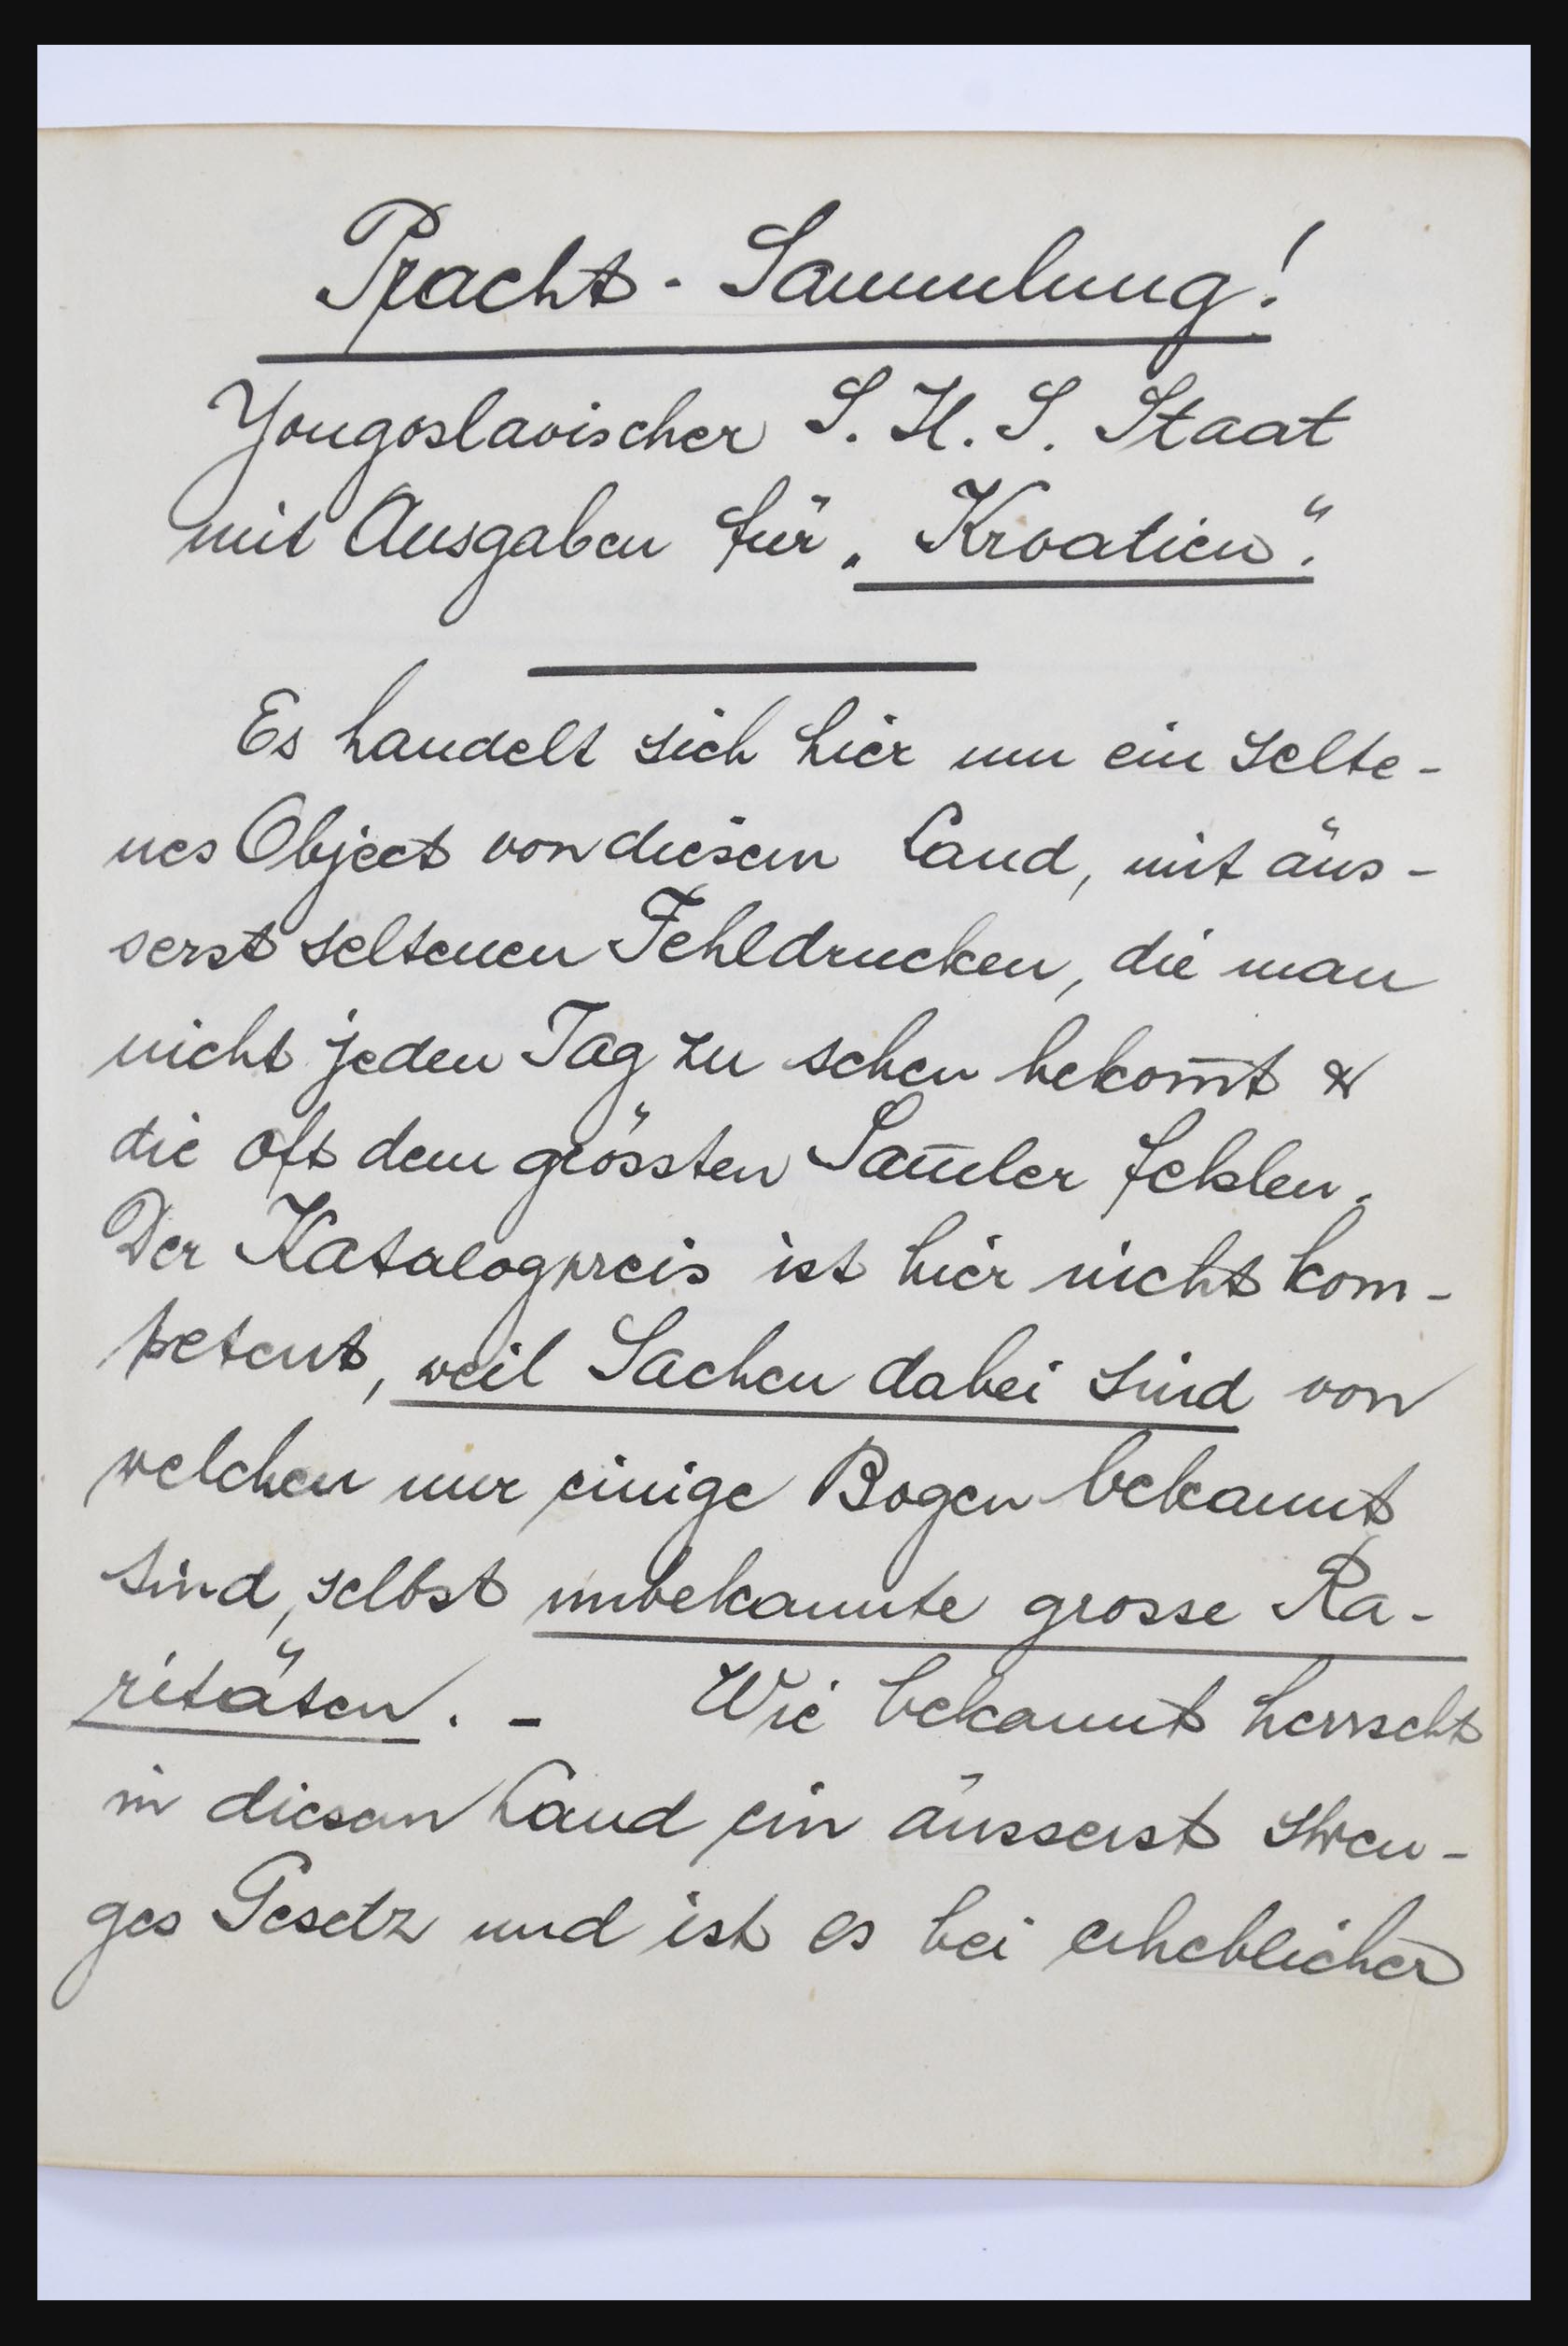 Pracht - Sammlung!
Yougoslavischer S. H. S. Staat
mit Ausgaben für „Kroatien“.
Es handelt sich hier um ein selte-
nes Object von diesem Land, mit äus-
serst seltenen Fehldrucken, die man
nicht jeden Tag zu sehen bekom̅t &
die oft dem grössten Sam̅ler fehlen.
Der Katalogpreis ist hier nicht kom-
petent, weil Sachen dabei sind von
welchen nur einige Bogen bekannt
sind, selbst unbekannte grosse Ra-
ritäten. - Wie bekannt herrscht
in diesem Land ein äusserst stren-
ges Gesetz und ist es bei erheblicher